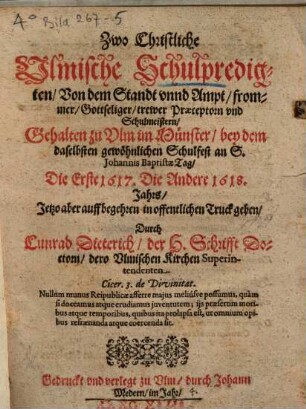 4° Bila 267-5
Zwo Christliche
Ulmische Schulpredig-
ten/ Von dem Standt vnnd Ampt/ from-
mer/ Gottseliger/ trewer Præceptorn vnd
Schulmeistern/
Gehalten zu Vlm im Münster/ bey dem
daselbsten gewöhnlichen Schulfest an S.
Johannis Baptistæ Tag/
Die Erste 1617. Die Andere 1618.
Jahrs/
Jetzo aber auff begehren in offentlichen Truck geben/
Durch
Cunrad Dieterich/ der H. Schrifft Do-
ctorn/ dero Vlmischen Kirchen Superin-
tendenten.
Cicer. 3. de Divinitat.
Nullum munus Reipublicæ afferre majus meliúsve possumus, quàm
si doceamus atque erudiamus juventutem; ijs præsertim mori-
bus atque temporibus, quibus ita prolapsa est, ut omnium opibus
refrænanda atque coërcenda sit.
Gedruckt vnd verlegt zu Vlm/ durch Johann
Medern/ im Jahr/